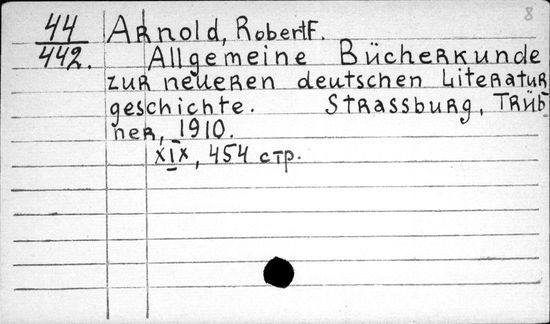 8
44 Arnold, Robert F.
442. Allgemeine Bücherkunde
zur neueren deutschen Literatur
geschichte. Strassburg, Trüb
ner, 1910.
XIX, 454 стр.